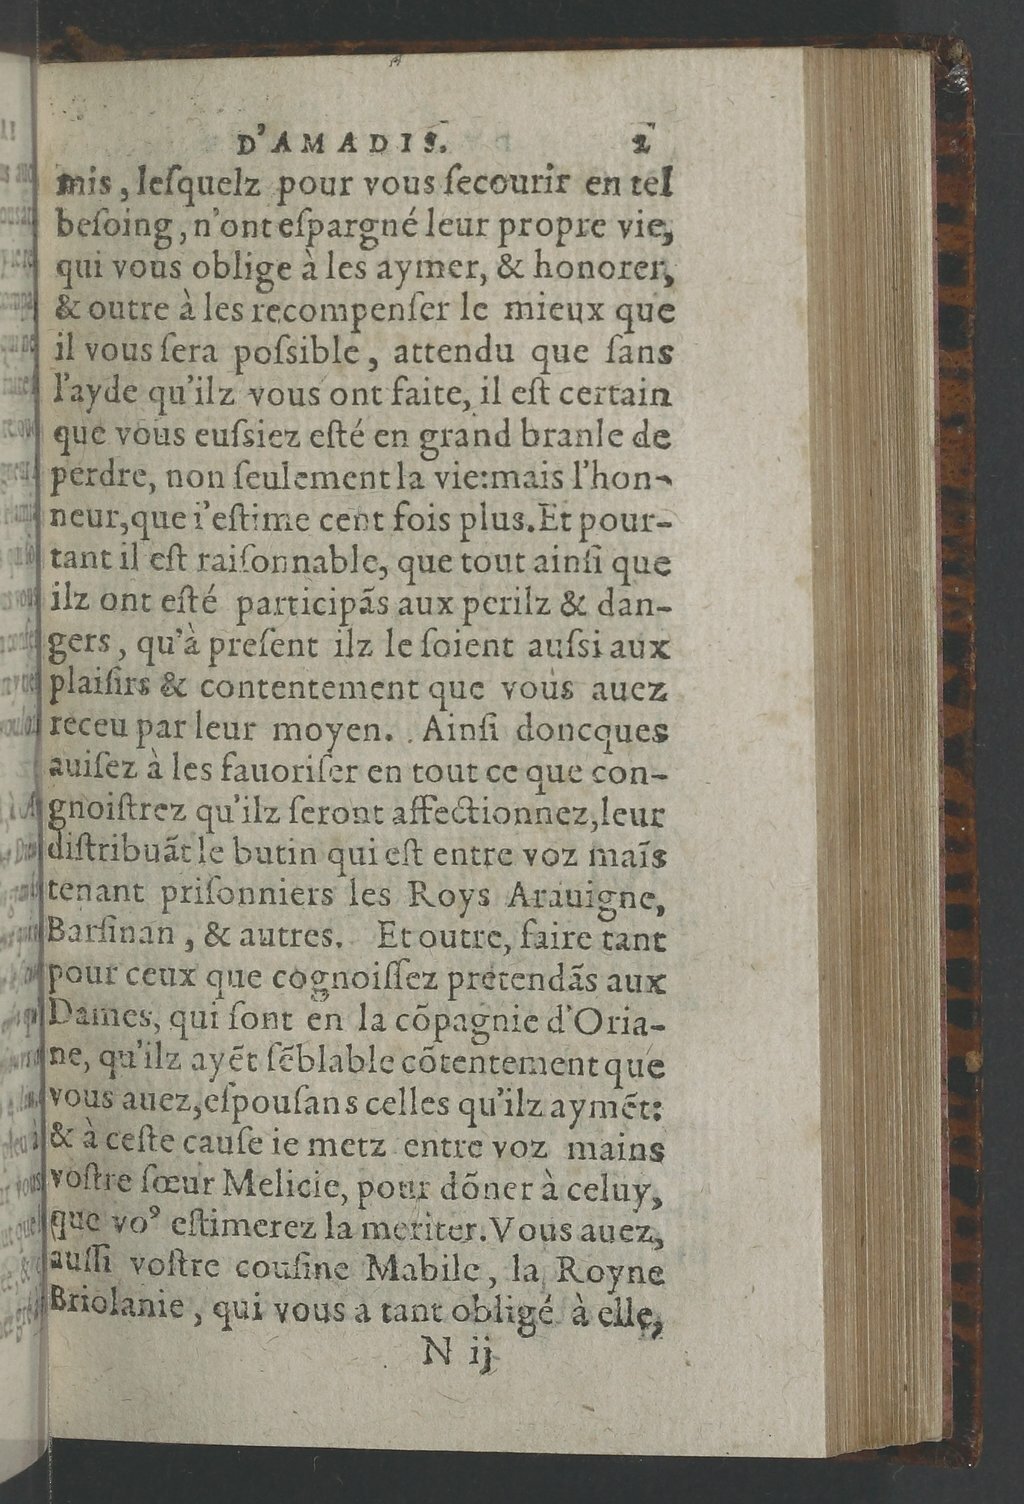 D'AMADIS. 2
mis, leſquelz pour vous ſecourir en tel
beſoing, n'ont eſpargné leur propre vie,
qui vous oblige à les aymer, & honorer,
& outre à les recompenſer le mieux que
il vous ſera poſsible, attendu que ſans
l'ayde qu'ilz vous ont faite, il eſt certain
que vous euſsiez eſté en grand branle de
perdre, non ſeulement la vie:mais l'hon-
neur,que i'eſtime cent fois plus.Et pour-
tant il eſt raiſonnable, que tout ainſi que
ilz ont eſté participãs aux perilz & dan-
gers, qu'à preſent ilz le ſoient auſsi aux
plaiſirs & contentement que vous auez
receu par leur moyen. Ainſi doncques
auiſez à les fauoriſer en tout ce que con-
gnoiſtrez qu'ilz ſeront affectionnez,leur
diſtribuãt le butin qui eſt entre voz maĩs
tenant priſonniers les Roys Arauigne,
Barſinan, & autres. Et outre, faire tant
pour ceux que cognoiſſez pretendãs aux
Dames, qui ſont en la cõpagnie d'Oria-
ne, qu'ilz ayẽt ſẽblable cõtentement que
vous auez,eſpouſans celles qu'ilz aymẽt:
& à ceſte cauſe ie metz entre voz mains
voſtre ſœur Melicie, pour dõner à celuy,
que voꝰ eſtimerez la meriter.Vous auez,
auſſi voſtre couſine Mabile, la Royne
Briolanie, qui vous a tant obligé à elle,
N ij